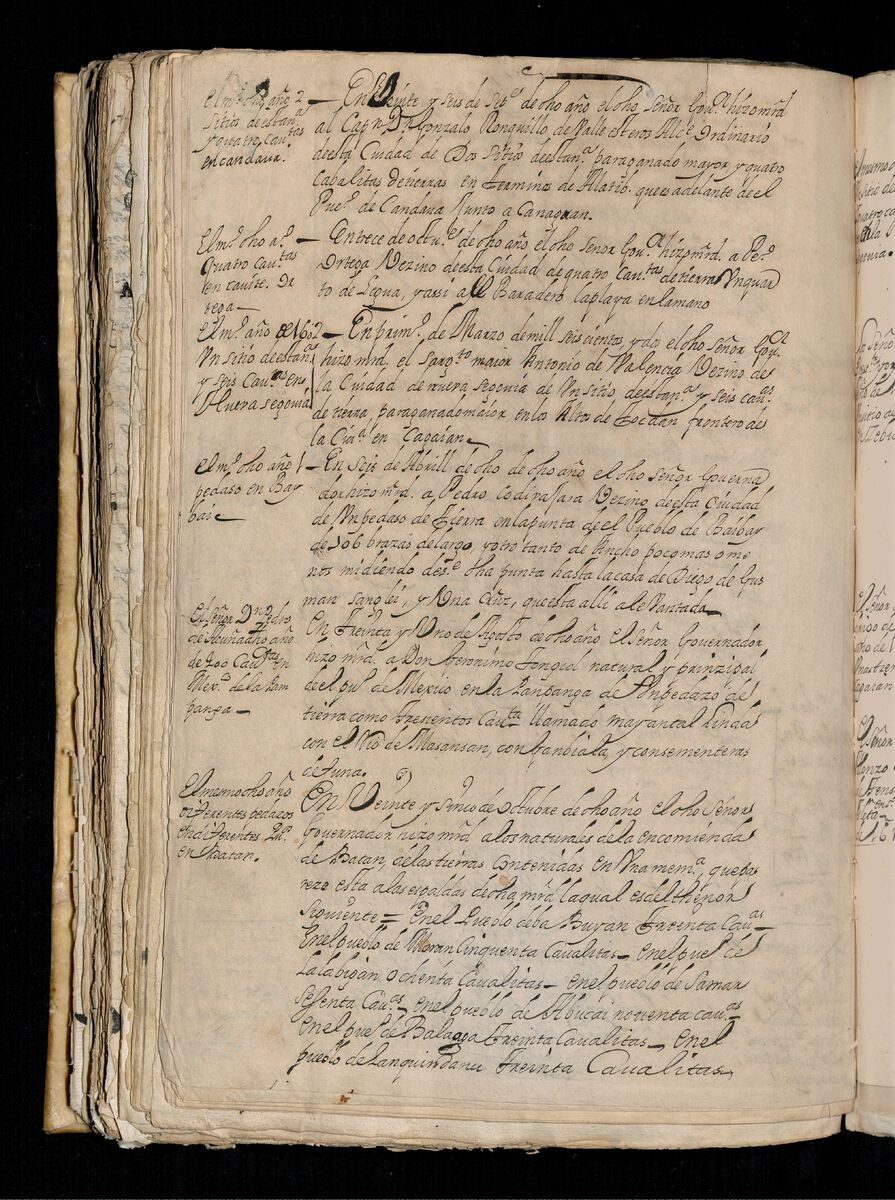 El mo. dho año 2
sitios de estan.a
y quatro cau.tas
en candaua.
En Veinte y seis de sep.e de dho año el dho señor Gou.or hizo mrd
al Cap.n D.n Gonzalo Ronquillo de Valle esteros Alc.e Ordinario
de esta Ciudad de Dos sitios de estan.a para ganado mayor y quatro
Cabalitas de tierras en termino de que es adelante de el
Pue.o de Candaua Junto a
El m.o dho a.o
Quatro Cau.tas
en cauite. Or
tega
En trece de octu.e de dho año el dho señor Gou.or hizo mrd. a Pe.o
Ortega Vezino de esta Ciudad de quatro Cau.tas de tierras Vn quar
to de Legua, y assi al Baradero la playa en la mano
El m.o año de 1602
Vn sitio de estan.a
y seis Cau.as en
Nueua segouia
En prim.o de Marzo de mill seiscientos, y do el dho señor Gou.or
hizo mrd. el sarg.to maior Antonio de Valencia Vezino de
la Ciudad de nueua segouia de Vn sitio de estan.a y seis cau.as
de tierra, para ganado maior en los Altos de Locdan frontero de
la Ciu.d en Cagaian
El m.o dho año 1
pedaso en Bay
bai
En seis de Abrill de dho de dho año el dho señor Governa
dor hizo mrd. a Pedro Vezino de esta Ciudad
de Vn pedaso de tierra en la punta de el Pueblo de Baibay
de 106 brazas de largo, y otro tanto de Ancho poco mas o me
nos midiendo des.e dha punta hasta la casa de Diego de Gus
man Sanglei, y Vna Cruz, que esta alli aleVantada
El señor D.n Pedro
de Acuña dho año
de 300 Cau.tas en
Mex.o de la Pam
panga
En Treinta y Vno de Agosto de dho año el señor Governador
hizo mrd. a Don Geronimo natural y prinzipal
de el pu.o de Mexico en la Panpanga de Vn pedazo de
tierra como Trescientos Cau.ta llamado mayantal linda
con el Rio de Masansan, con y con sementeras
de
El mismo dho año
diferentes pedazos
en diferentes Pu.os
en Batan.
En Veinte y sinco de octubre de dho año el dho señor
Governador hizo mrd a los naturales de la encomienda
de Batan, de las tierras contenidas en Vna mem.a, que pa
rezo esta a las espaldas de dha mrd la qual es del thenor
siguiente = En el Pueblo de ba Buyan Treinta Cau.as
En el pueblo de Moron Cinquenta Caualitas — en el pue.o de
Lalabigan ochenta Caualitas — en el pueblo de Samar
sesenta Cau.as — en el pueblo de Abucai nouenta cau.as
en el pue.o de Balaga Treinta Caualitas —, en el
pueblo de Treinta Caualitas